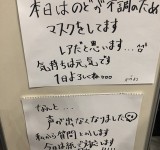 本日はのどが不調のため
マスクをしてます
レアだと思います…
気持ちは元気です
1日よろしくね。。。
なんと…
声が出なくなりました
私から質問